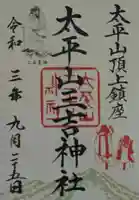 太平山頂上鎮座
太平山三吉神社
令和三年九月二五日